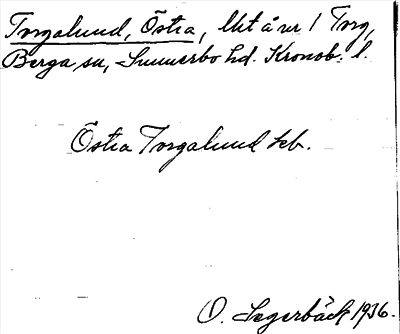 Torgalund, Östra, lht å nr 1 Torg,
Berga sn, Sunnerbo hd. Kronob. l.
Östra Torgalund hb.
O. Lagerbäck 1936.